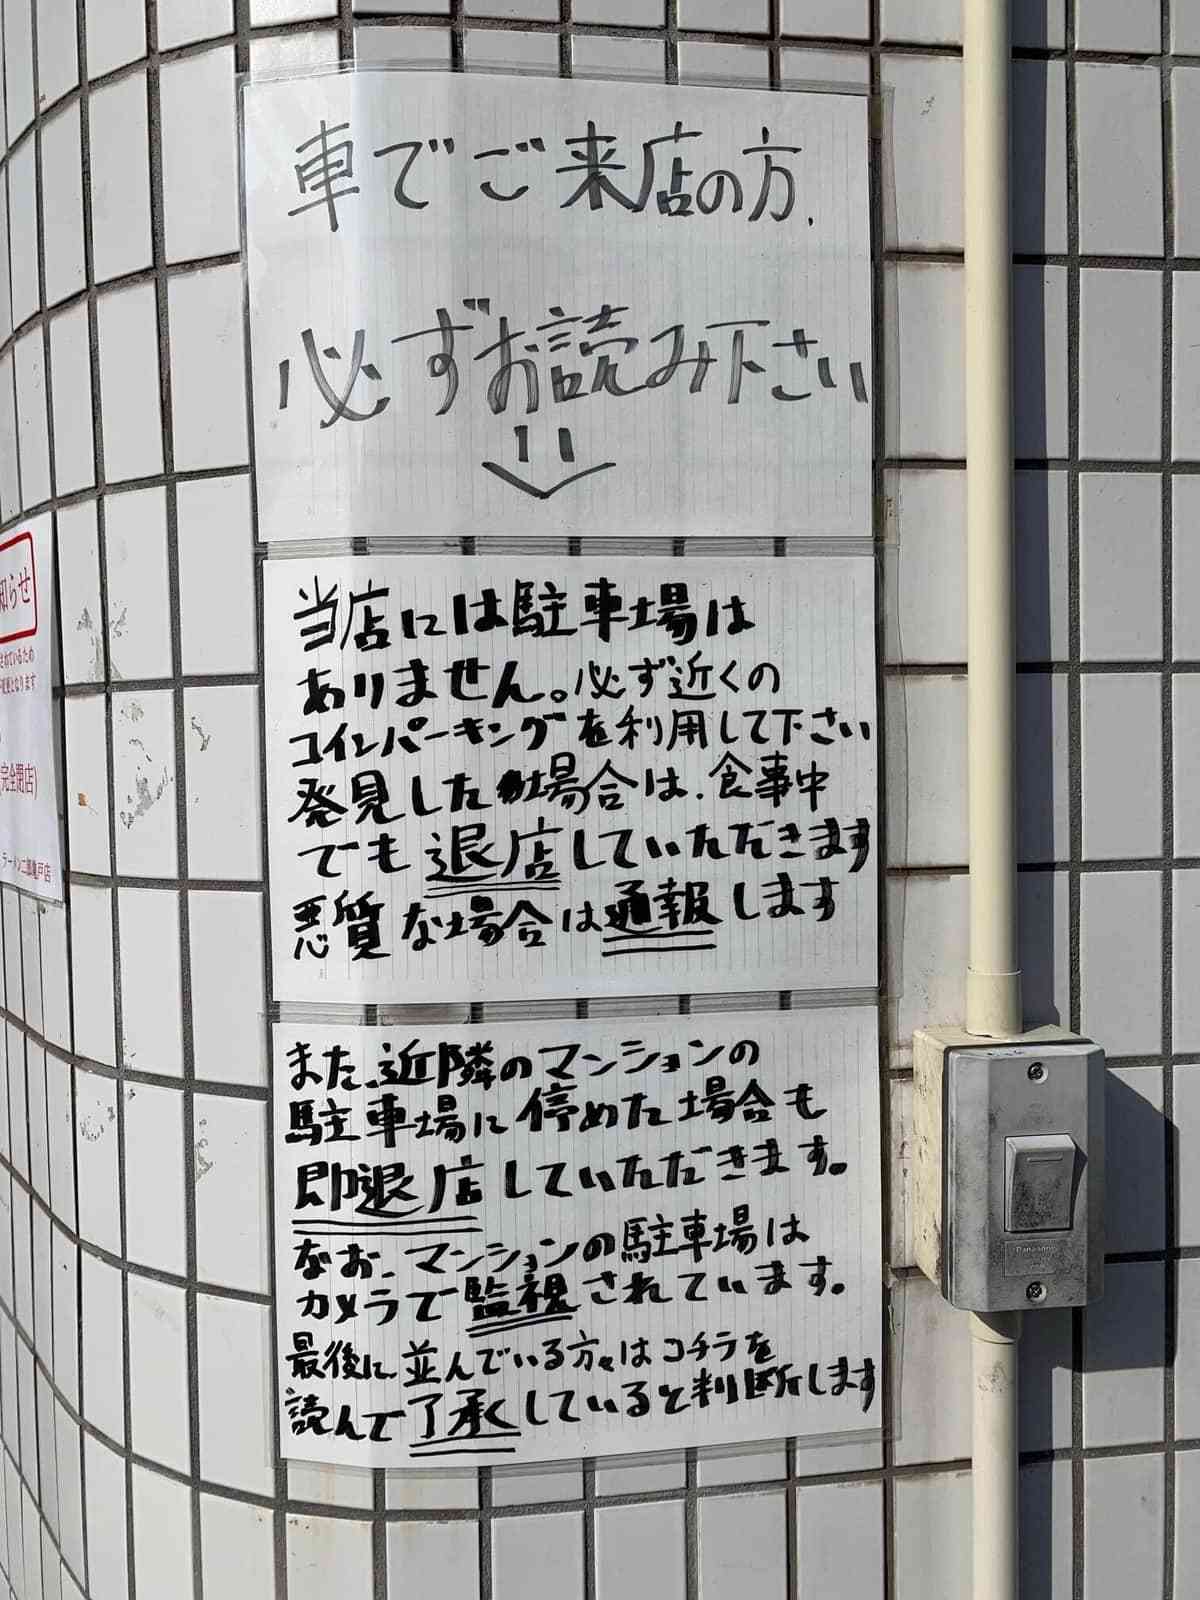 車でご来店の方、
必ずお読み下さい
当店には駐車場は
ありません。必ず近くの
コインパーキングを利用して下さい
発見した場合は、食事中
でも退店していただきます
悪質な場合は通報します
また、近隣のマンションの
駐車場に停めた場合も
即退店していただきます。
なお、マンションの駐車場は
カメラで監視されています。
最後に並んでいる方々はコチラを
読んで了承していると判断します
知らせ
されているため
変更となります
完全閉店)
ラーメン二郎亀戸店
Panasonic